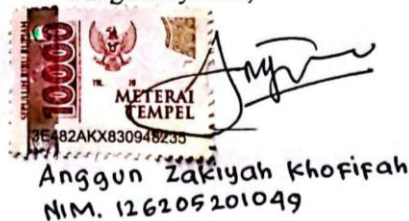 10000
METERAI
TEMPEL
3E482AKX830948235
Anggun Zakiyah Khofifah
NIM. 126205201049